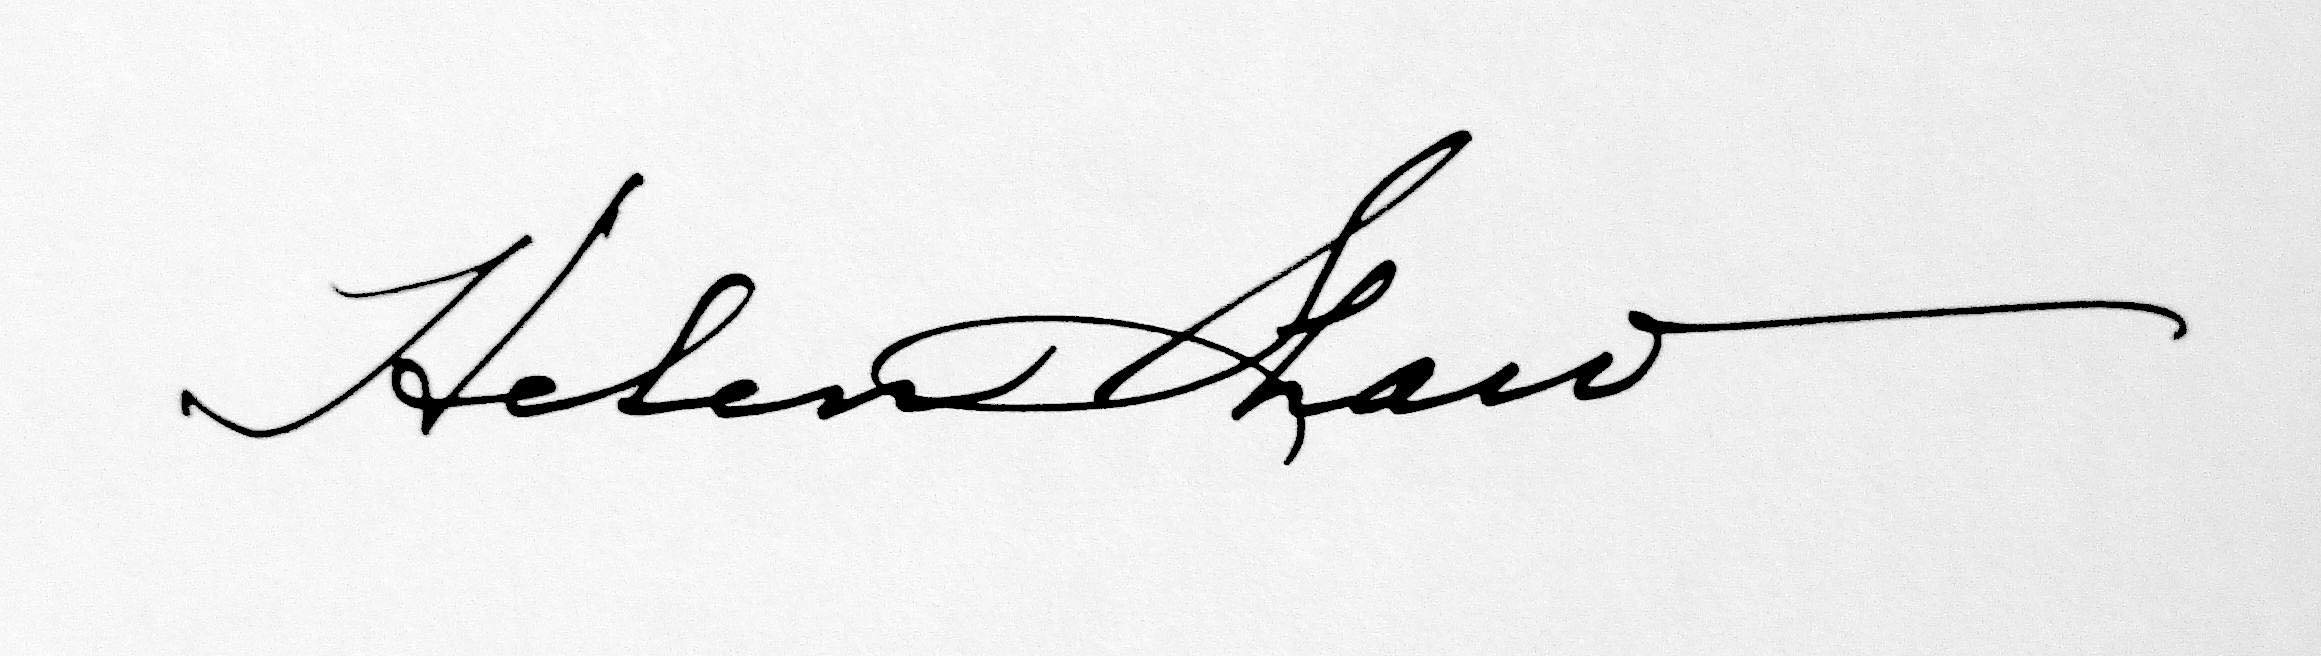 Helen Shaw